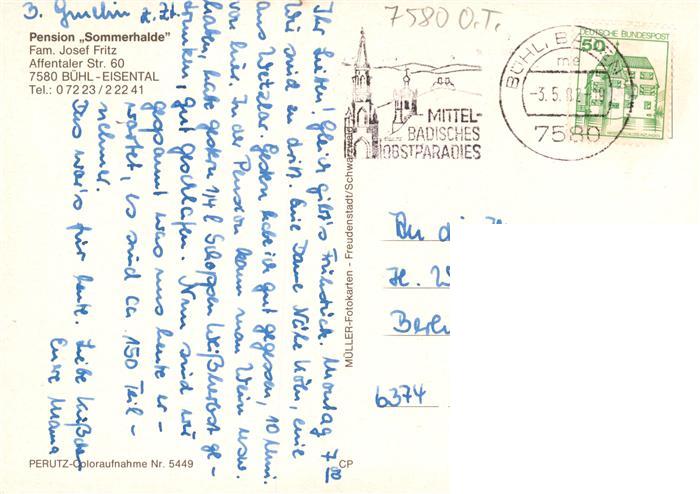 7580 O.T.
Pension „Sommerhalde"
Fam. Josef Fritz
Affentaler Str. 60
7580 BÜHL-EISENTAL
Tel.: 0 72 23 / 2 22 41
Ihr Lieben! Gleich gibt's Frühstück. Montag 7⁰⁰
Wir sind zu dritt. Eine Dame Nähe Köln, eine
aus Wetzlar. Gestern habe ich gut gegessen, 10 Min.
von hier. In der Pension kann man Wein usw.
haben, habe gestern 1/4 l Schoppen Weißherbst ge-
trunken, gut geschlafen. Nun sind wir
gespannt was uns heute er-
wartet, es sind ca. 150 Teil-
nehmer.
Das war's für heute. Liebe Küßchen
Eure Mama
MITTEL-
BADISCHES
OBSTPARADIES
BÜHL, BADEN
-3.5.82
7580
DEUTSCHE BUNDESPOST
50
An
H.
Berlin
6374
MÜLLER-Fotokarten - Freudenstadt/Schwarzwald
PERUTZ-Coloraufnahme Nr. 5449
CP